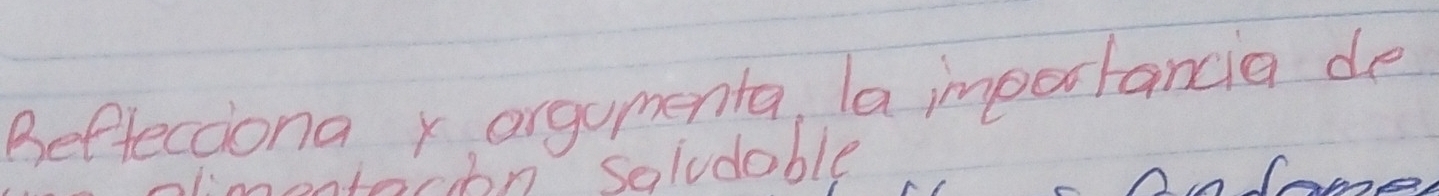 Reflecciona y argumenta, la importancia de
alimentación saludable